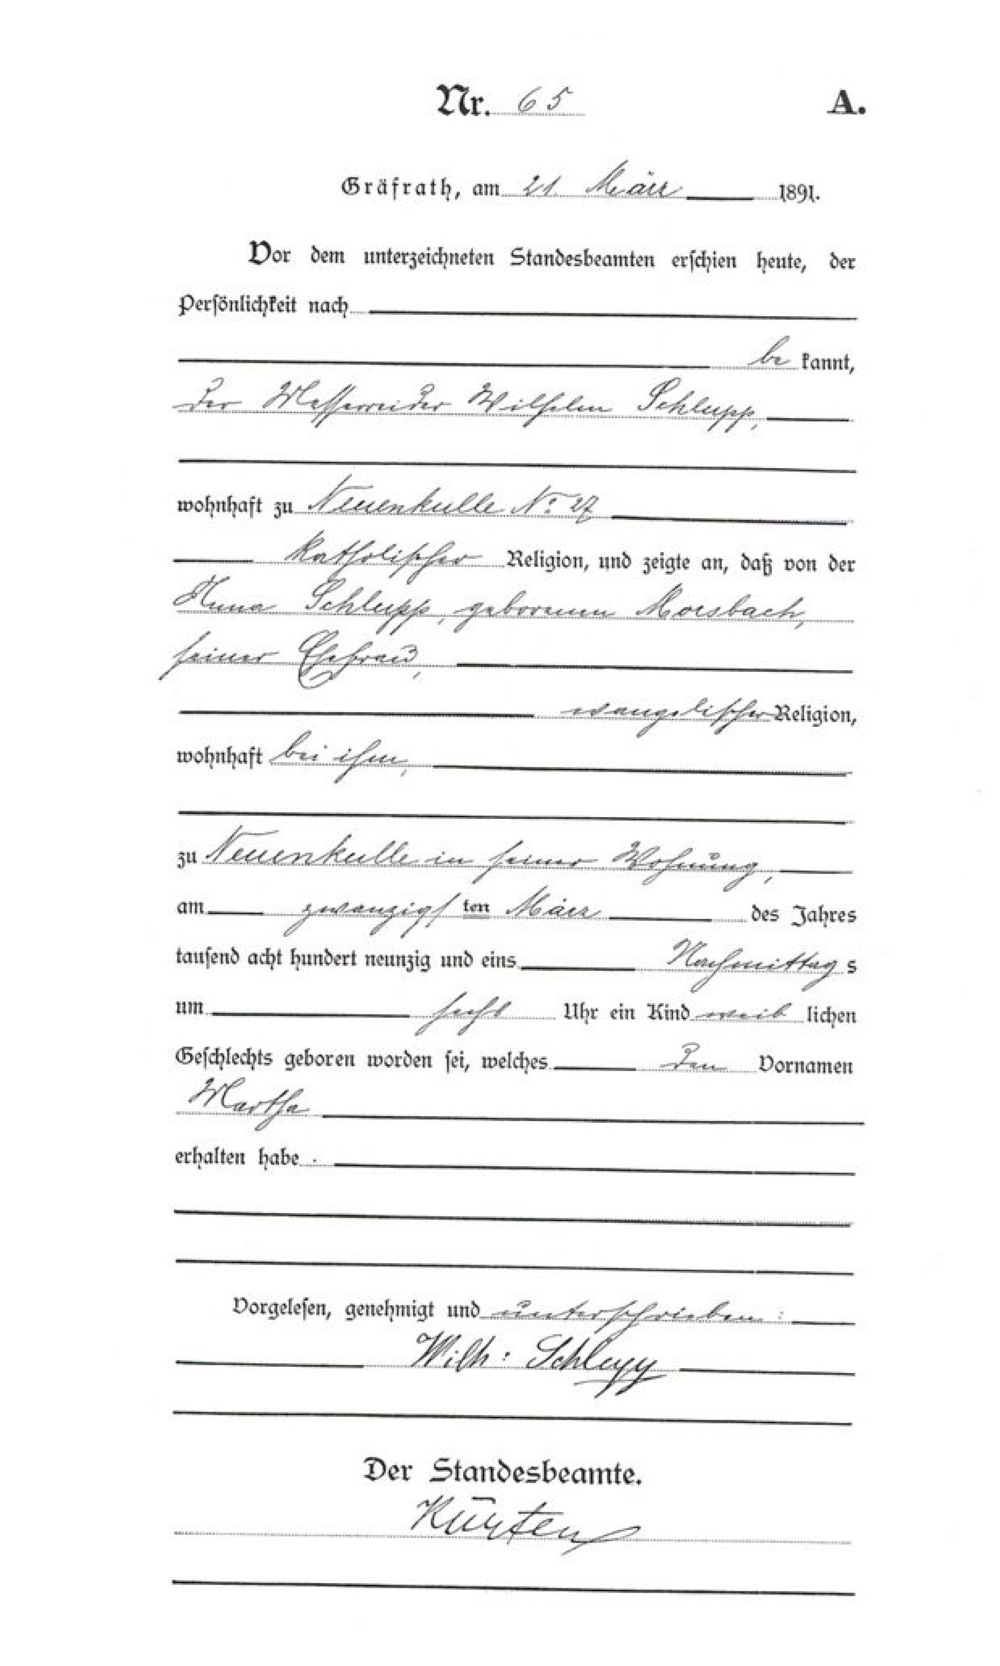 Nr. 65 A.
Gräfrath, am 21. März 1891.
Vor dem unterzeichneten Standesbeamten erschien heute, der
Persönlichkeit nach
be kannt,
der Messerreider Wilhelm Schlupp,
wohnhaft zu Neuenkulle No. 27
katholischer Religion, und zeigte an, daß von der
Anna Schlupp, geborenen Morsbach,
seiner Ehefrau,
evangelischer Religion,
wohnhaft bei ihm,
zu Neuenkulle in seiner Wohnung,
am zwanzigs ten März des Jahres
tausend acht hundert neunzig und eins Nachmittag s
um sechs Uhr ein Kind weib lichen
Geschlechts geboren worden sei, welches den Vornamen
Martha
erhalten habe.
Vorgelesen, genehmigt und unterschrieben:
Wilh: Schlupp
Der Standesbeamte.
Kürten